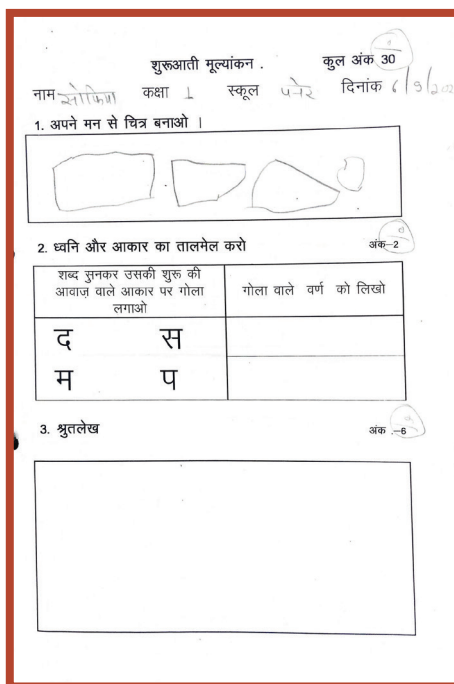 शुरूआती मूल्यांकन . कुल अंक 30
नाम सोफिया कक्षा 1 स्कूल पनेर दिनांक 6/9/202
1. अपने मन से चित्र बनाओ ।
2. ध्वनि और आकार का तालमेल करो अंक–2
शब्द सुनकर उसकी शुरू की
आवाज़ वाले आकार पर गोला
लगाओ
गोला वाले वर्ण को लिखो
द स
म प
3. श्रुतलेख अंक .–6